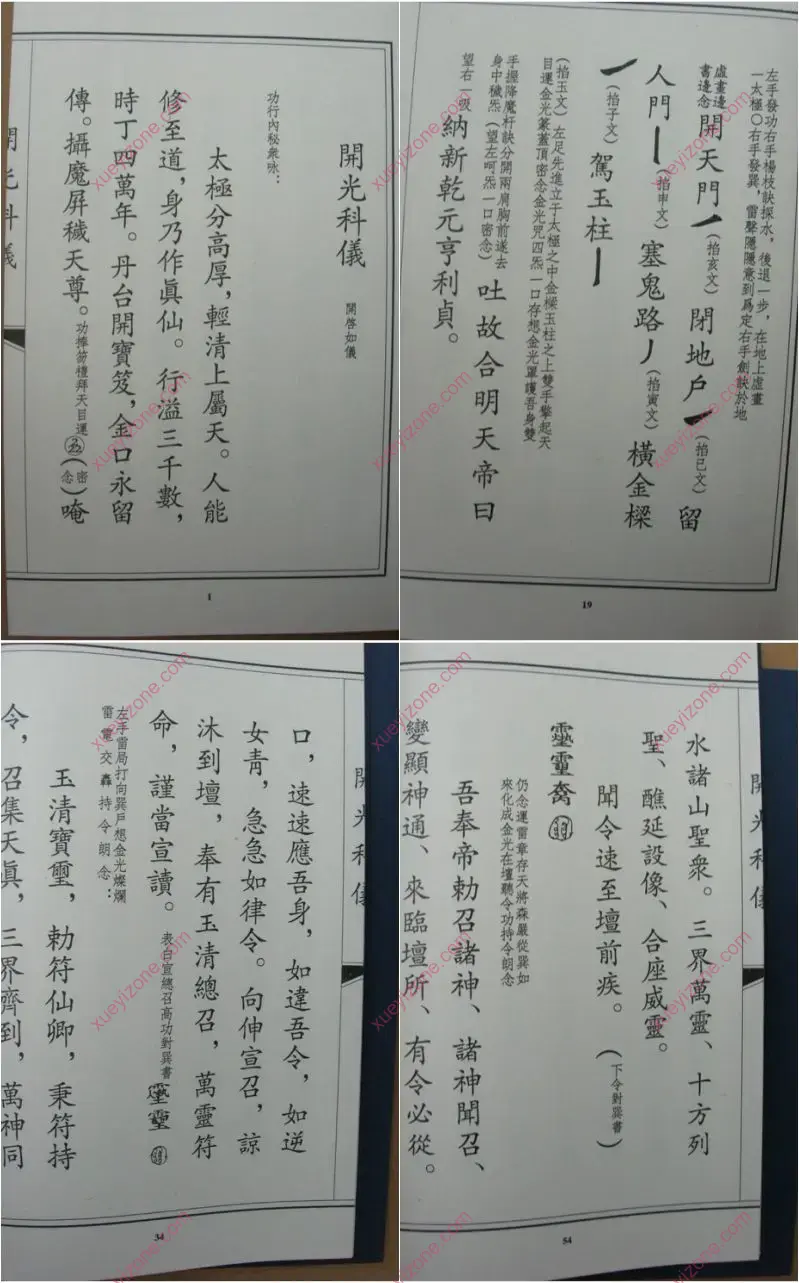 開光科儀 開啓如儀
功行內秘衆咏：
太極分高厚，輕清上屬天。人能
修至道，身乃作眞仙。行溢三千數，
時丁四萬年。丹台開寶笈，金口永留
傳。攝魔屛穢天尊。功捧笏檀拜天目運（密念）唵
開光科儀
1
左手發功右手楊枝訣探水，後退一步，在地上虛畫
一太極〇右手發巽，雷聲隱隱意到爲定右手劍訣於地
虛畫邊
書邊念開天門（掐亥文）閉地戶（掐巳文）留
人門（掐申文）塞鬼路（掐寅文）橫金樑
（掐子文）駕玉柱
（掐玉文）左足先進立于太極之中金樑玉柱之上雙手擎起天
目運金光篆蓋頂密念金光咒四炁一口存想金光罩護吾身雙
手握降魔杆訣分開兩肩胸前遂去
身中穢炁（望左呵炁一口密念）吐故合明天帝曰
望右一吸納新乾元亨利貞。
19
口，速速應吾身，如違吾令，如逆
女青，急急如律令。向伸宣召，諒
沐到壇，奉有玉清總召，萬靈符
命，謹當宣讀。表白宣總召高功對巽書
左手雷局打向巽戶想金光燦爛
雷電交轟持令朗念：
玉清寶璽，勅符仙卿，秉符持
令，召集天眞，三界齊到，萬神同
34
開光科儀
水諸山聖衆。三界萬靈、十方列
聖、醮延設像、合座威靈。
聞令速至壇前疾。（下令對巽書）
仍念運雷章存天將森嚴從巽如
來化成金光在壇聽令功持令朗念
吾奉帝勅召諸神、諸神聞召、
變顯神通、來臨壇所、有令必從。
54
開光科儀
xueyizone.com